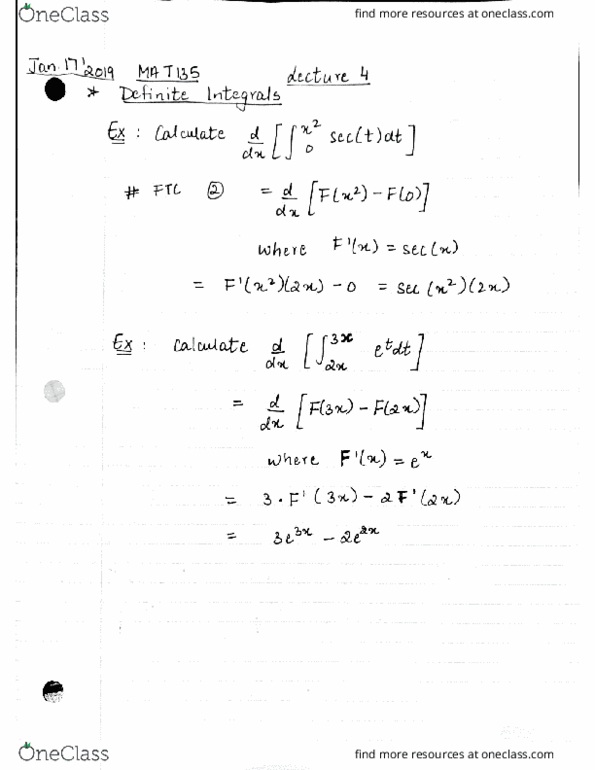 OneClass
find more resources at oneclass.com
Jan. 17' 2019 MAT135 Lecture 4
* Definite Integrals
Ex : Calculate d/dx [∫₀^x² sec(t)dt]
# FTC ② = d/dx [F(x²) - F(0)]
where F'(x) = sec(x)
= F'(x²)(2x) - 0 = sec (x²)(2x)
Ex : Calculate d/dx [∫_2x^3x e^t dt]
= d/dx [F(3x) - F(2x)]
where F'(x) = e^x
= 3 · F'(3x) - 2 F'(2x)
= 3e^3x - 2e^2x
OneClass
find more resources at oneclass.com